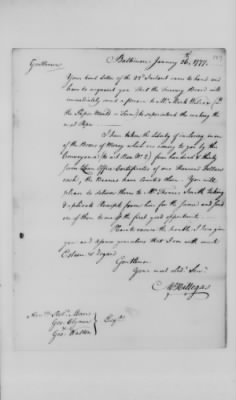 Baltimore January 24th 1777.
Gentlemen
Your kind Letter of the 22d Instant came to hand and
have to acquaint you that the Treasury Board will
immediately send a person to Mr Mark Wilcox (at
the Paper Mill
to superintend the making the
said Paper
I have taken the Liberty of inclosing in one
of the Boxes of Money which are coming to you by this
Conveyance
four hundred & thirty
Loan Office Certificates of one thousand Dollars
each, the Bearer has
them. You will
please to deliver them to Mr Thomas Smith taking
duplicate Receipts from him for the same and send
one of them to me by the first good opportunity
Please to excuse the trouble I here give
you and appear
that I am with much
Esteem & Regard
Gentlemen
Your most Obdt Servt
M. Hillegas
Honble Robt Morris
Geo. Clymer
Geo. Walton
Esqrs